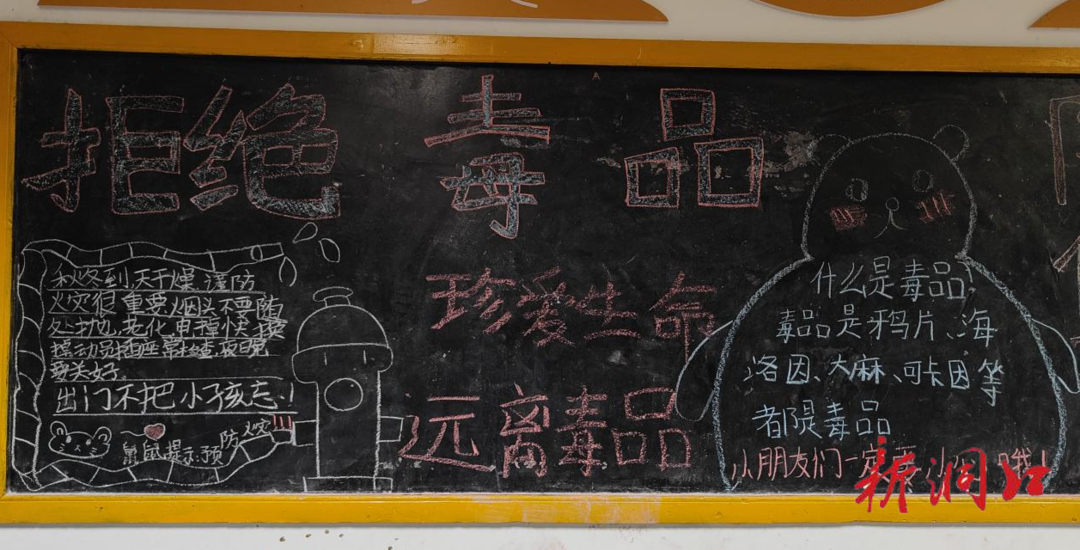 拒绝 毒品
秋冬到,天干燥,谨防
火灾很重要,烟头不要随
处扔,老化电
插座
要关好
出门不把小孩忘!
鼠鼠提示:预防火灾
珍爱生命
远离毒品
什么是毒品?
毒品是鸦片、海
洛因、大麻、可卡因等
都是毒品
小朋友们一定
新洞口